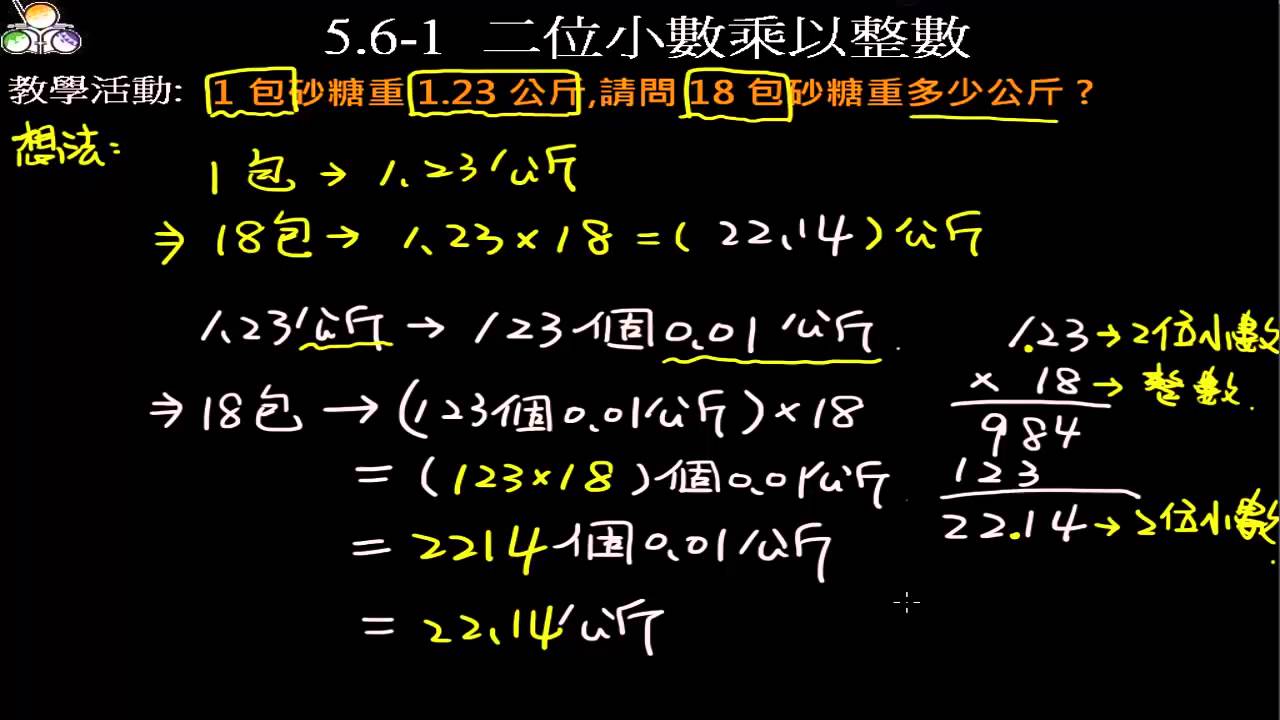 5.6-1 二位小數乘以整數
教學活動: 1 包砂糖重 1.23 公斤,請問 18 包砂糖重多少公斤？
想法:
1包 → 1.23公斤
⇒ 18包 → 1.23×18=( 22.14 )公斤
1.23公斤 → 123個0.01公斤.
⇒ 18包 → (123個0.01公斤)×18
= (123×18)個0.01公斤
= 2214個0.01公斤
= 22.14公斤
1.23→2位小數
× 18→整數.
984
123
22.14→2位小數.